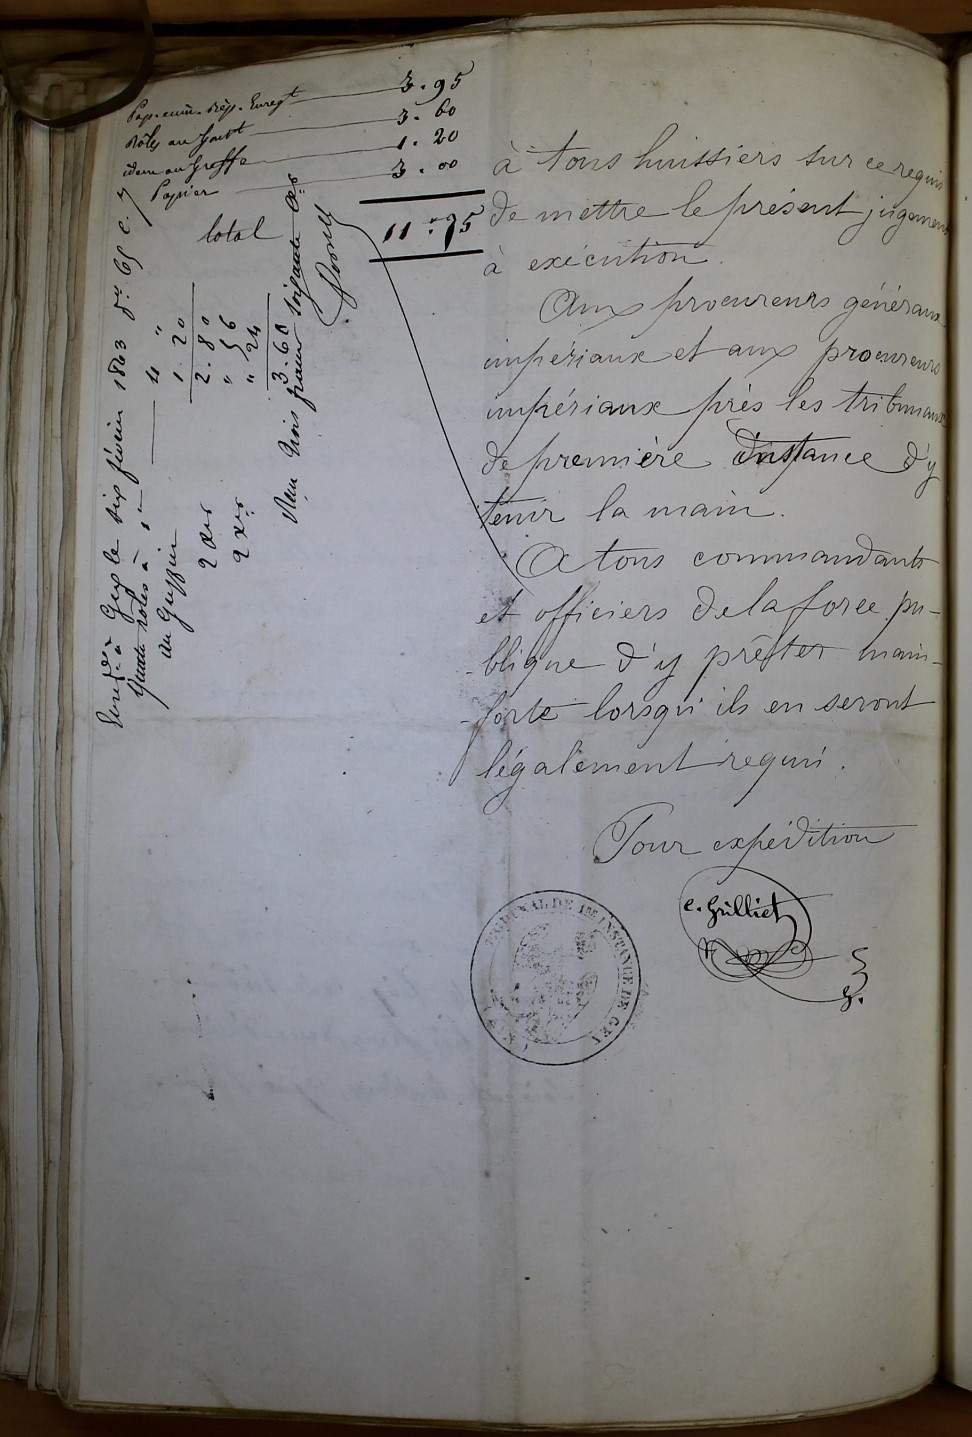 Pap. min. Rép. Enregt 3.95
Rôles au Gouvt 3.60
idem au Greffe 1.20
Papier 3.00
total 11.75
à tous huissiers sur ce requis
de mettre le présent jugement
à exécution.
Aux procureurs généraux
impériaux et aux procureurs
impériaux près les tribunaux
de première instance d'y
tenir la main.
A tous commandants
et officiers de la force pu-
-blique d'y prêter main-
-forte lorsqu'ils en seront
légalement requis.
Pour expédition
C. Grilliet
TRIBUNAL DE 1RE INSTANCE DE GEX
(AIN)
à Gex le six février 1863 fo. 69 c. 7
quatre rôles à 1 4 "
au Greffier 1.20
2.80
2 Xes " 56
2 Xes " 24
3.60
Reçu trois francs soixante ces